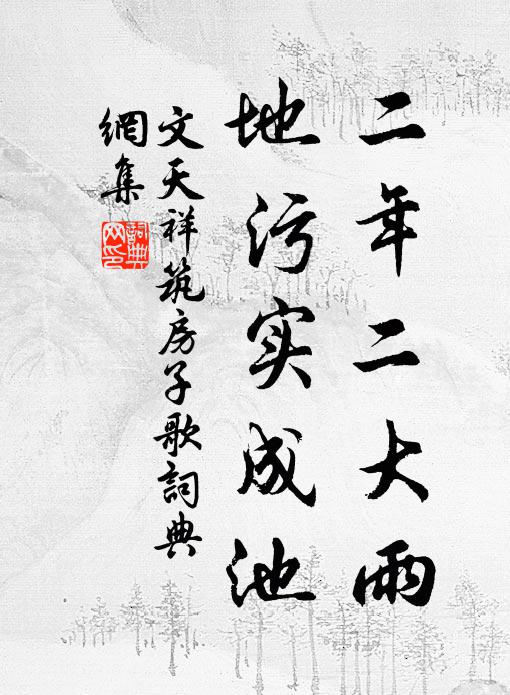 二年二大雨
地污实成池
文天祥筑房子歌詞典
網集
詞典
网印